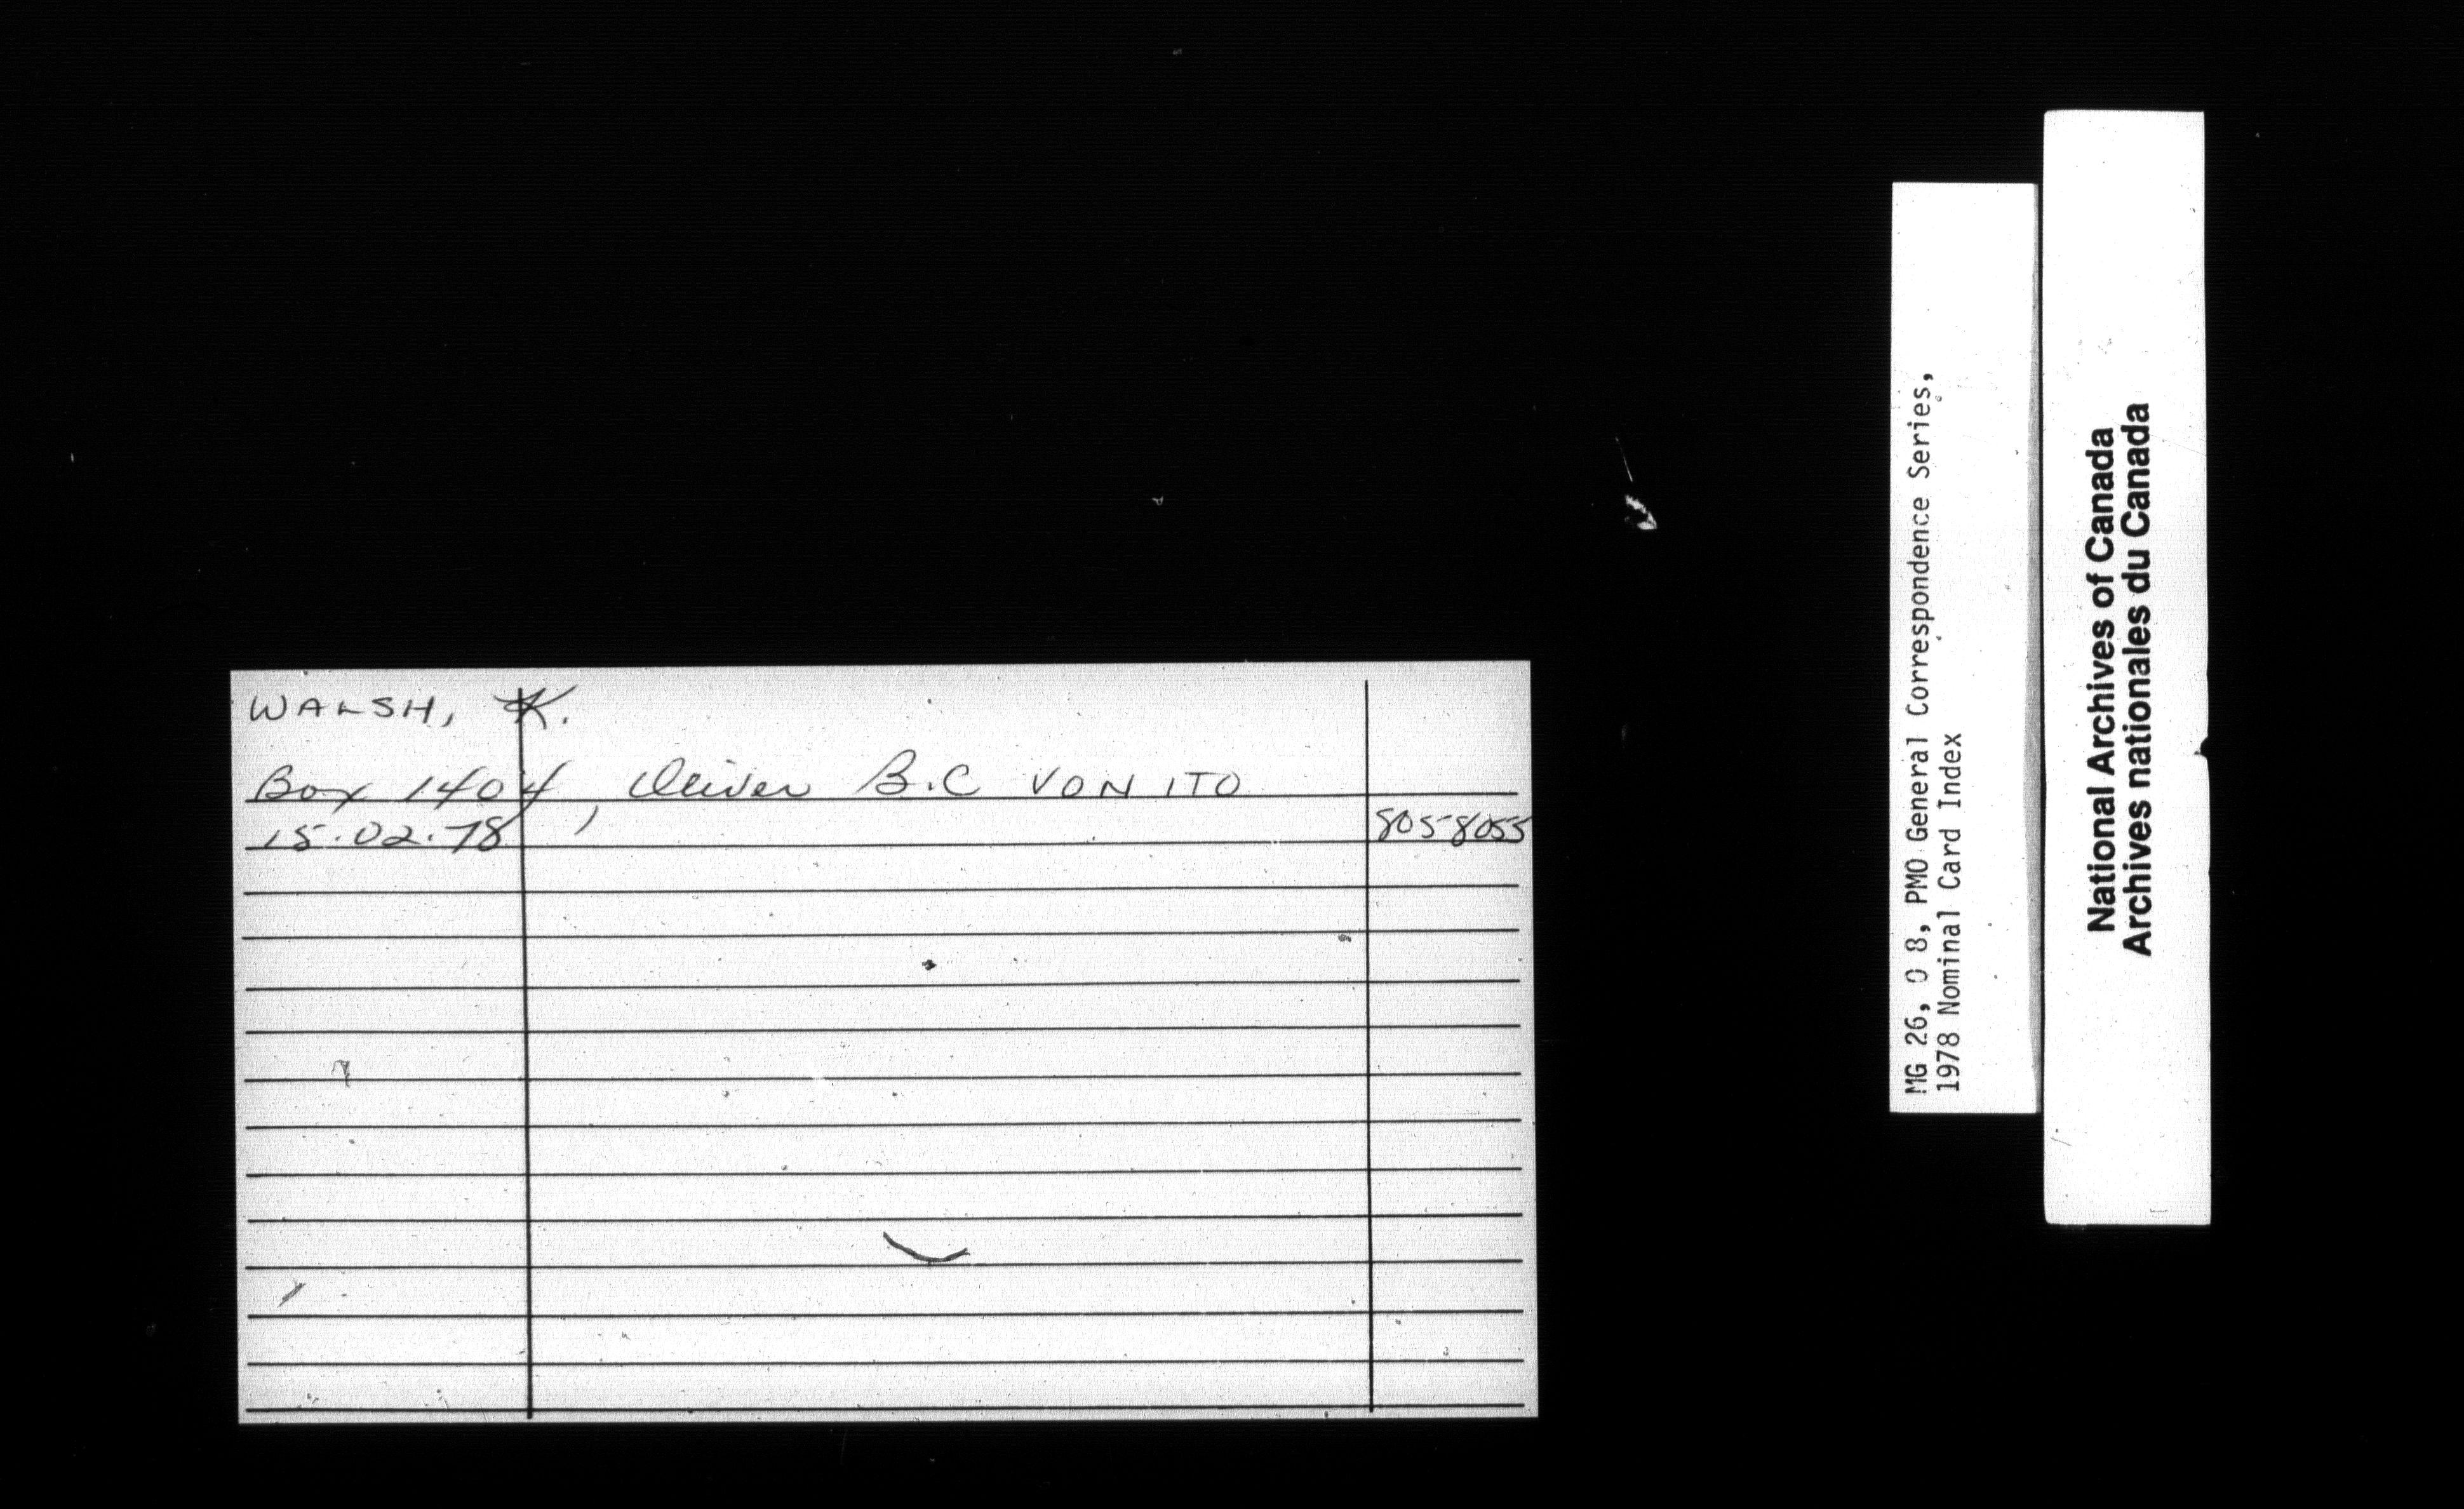 WALSH, K.
Box 1404, Oliver B.C VON ITO
15.02.78
8058055
MG 26, O 8, PMO General Correspondence Series,
1978 Nominal Card Index
National Archives of Canada
Archives nationales du Canada